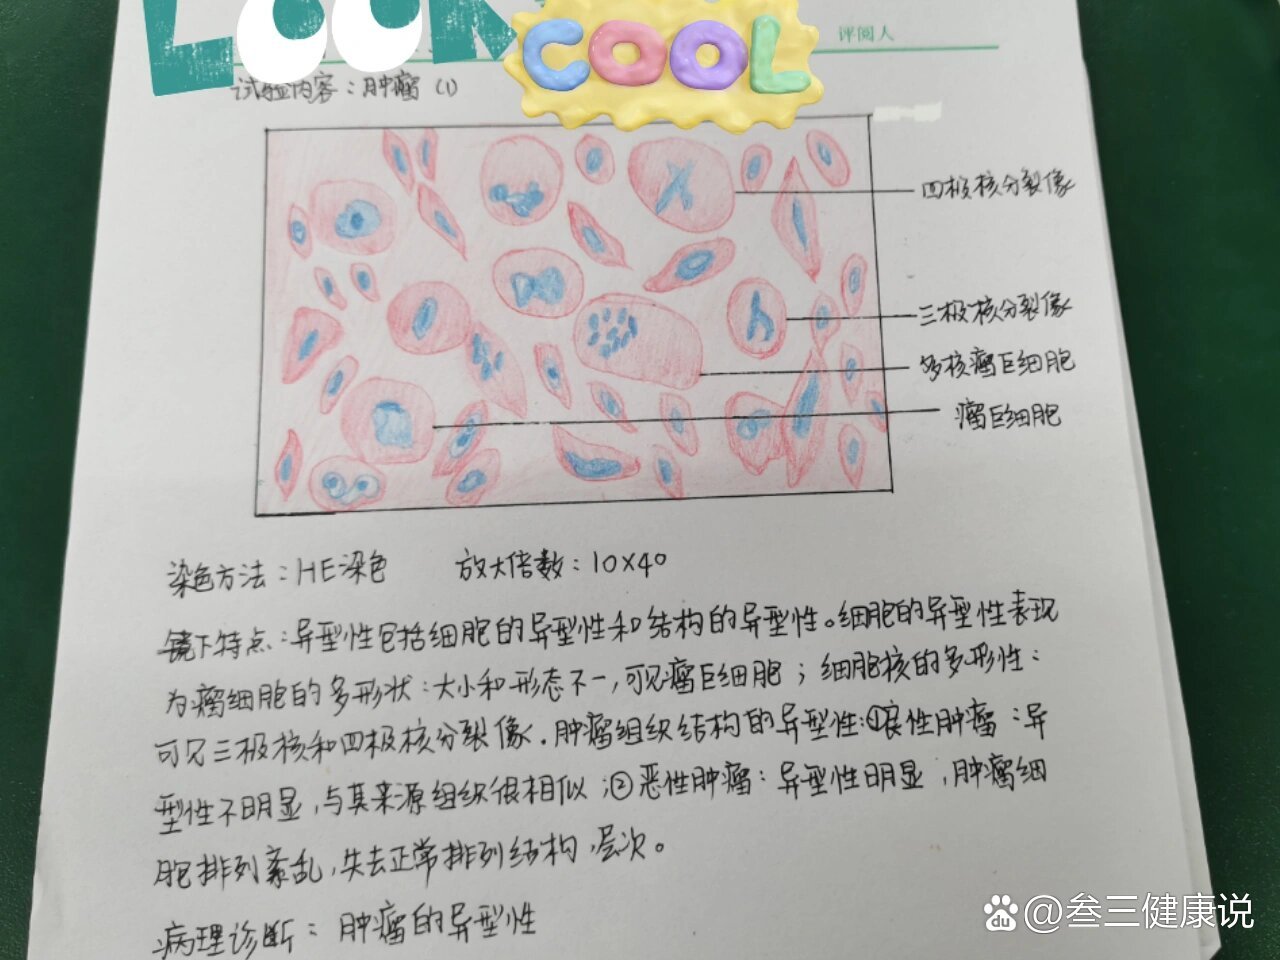 LOOK
COOL
评阅人
试验内容：肿瘤 (1)
四极核分裂像
三极核分裂像
多核瘤巨细胞
瘤巨细胞
染色方法：HE染色 放大倍数：10×40
镜下特点：异型性包括细胞的异型性和结构的异型性。细胞的异型性表现
为瘤细胞的多形状：大小和形态不一，可见瘤巨细胞；细胞核的多形性：
可见三极核和四极核分裂像．肿瘤组织结构的异型性：①良性肿瘤：异
型性不明显，与其来源组织很相似；②恶性肿瘤：异型性明显，肿瘤细
胞排列紊乱，失去正常排列结构，层次。
病理诊断：肿瘤的异型性
Bai du @叁三健康说